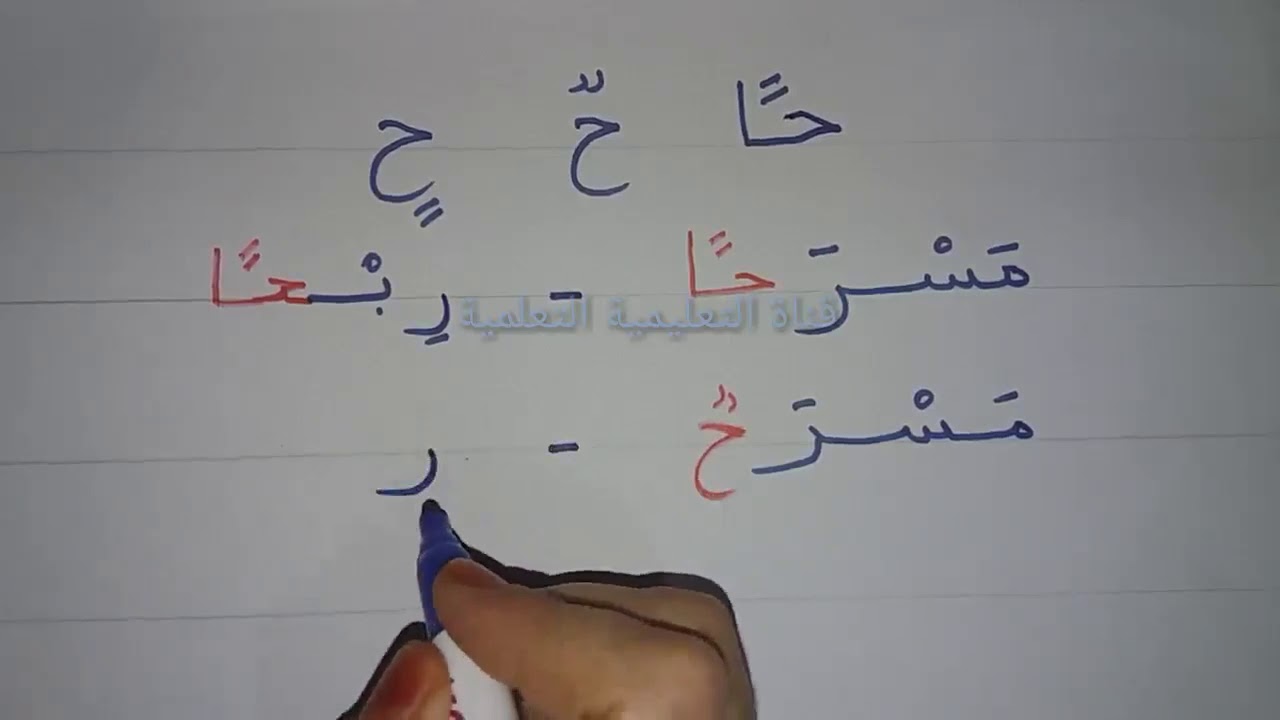 حًا حٌّ حٍ
مَسْرَحًا - رِبْحًا
قناة التعليمية التعلمية
مَسْرَحٌ - ر